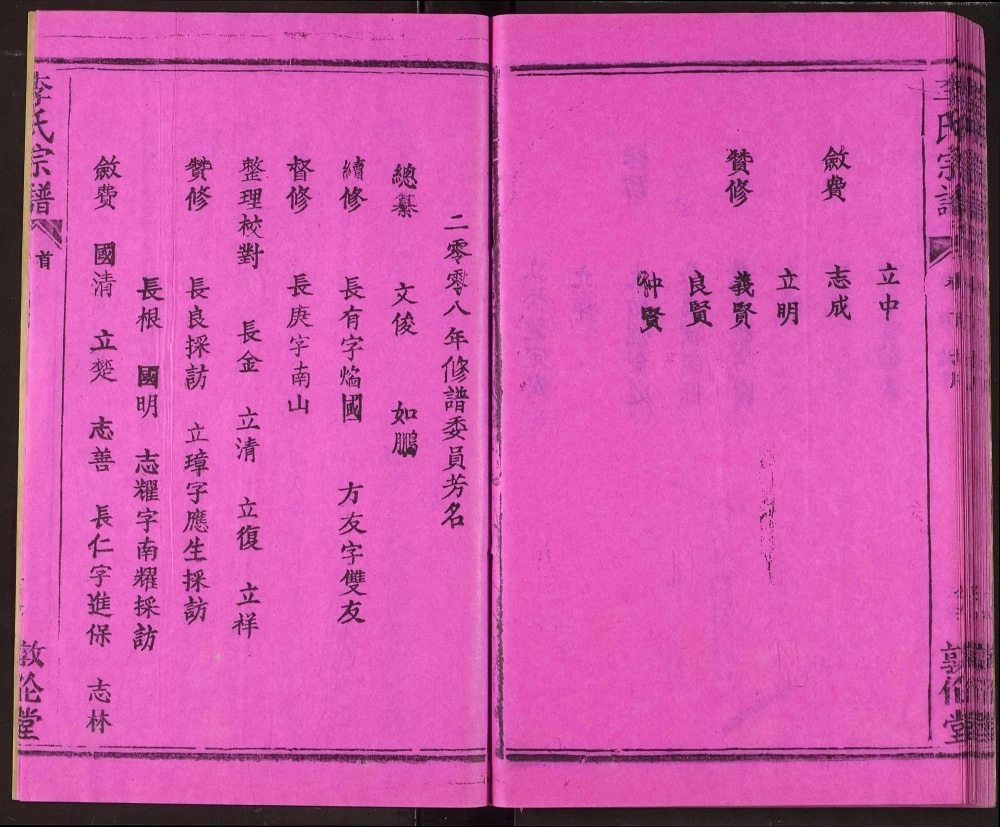 李氏宗譜
敦伦堂
立中
斂費 志成
立明
贊修 義賢
良賢
钟賢
二零零八年修譜委員芳名
總纂 文俊 如鵬
續修 長有字焔國 方友字雙友
督修 長庚字南山
整理校對 長金 立清 立復 立祥
贊修 長良採訪 立璋字應生採訪
長根 國明 志耀字南耀採訪
斂費 國清 立楚 志善 長仁字進保 志林
李氏宗譜 首
敦伦堂